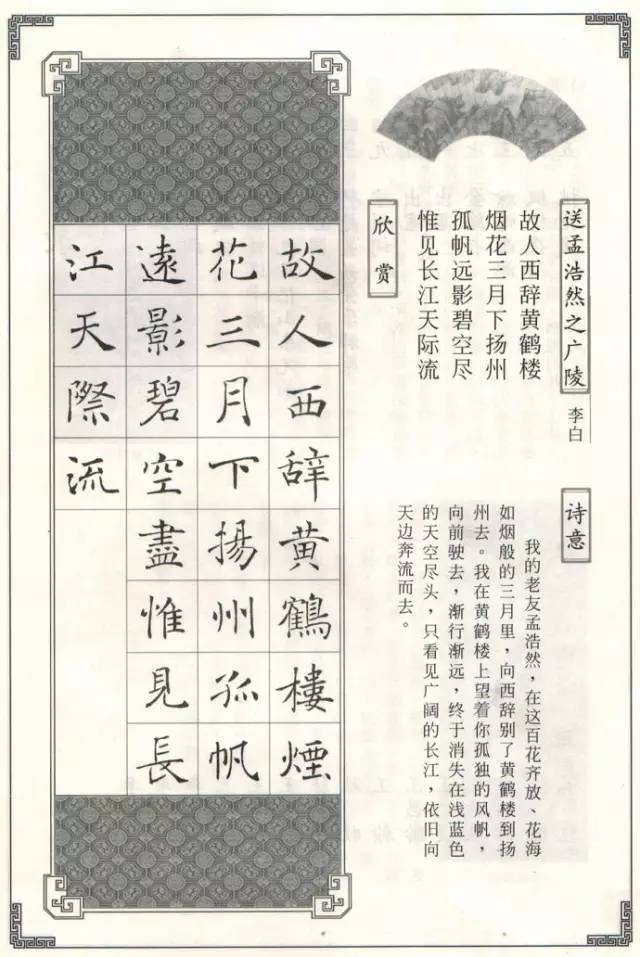 送孟浩然之广陵
李白
故人西辞黄鹤楼
烟花三月下扬州
孤帆远影碧空尽
惟见长江天际流
欣赏
诗意
我的老友孟浩然，在这百花齐放、花海
如烟般的三月里，向西辞别了黄鹤楼到扬
州去。我在黄鹤楼上望着你孤独的风帆，
向前驶去，渐行渐远，终于消失在浅蓝色
的天空尽头，只看见广阔的长江，依旧向
天边奔流而去。
故人西辞黄鶴樓煙
花三月下揚州孤帆
遠影碧空盡惟見長
江天際流